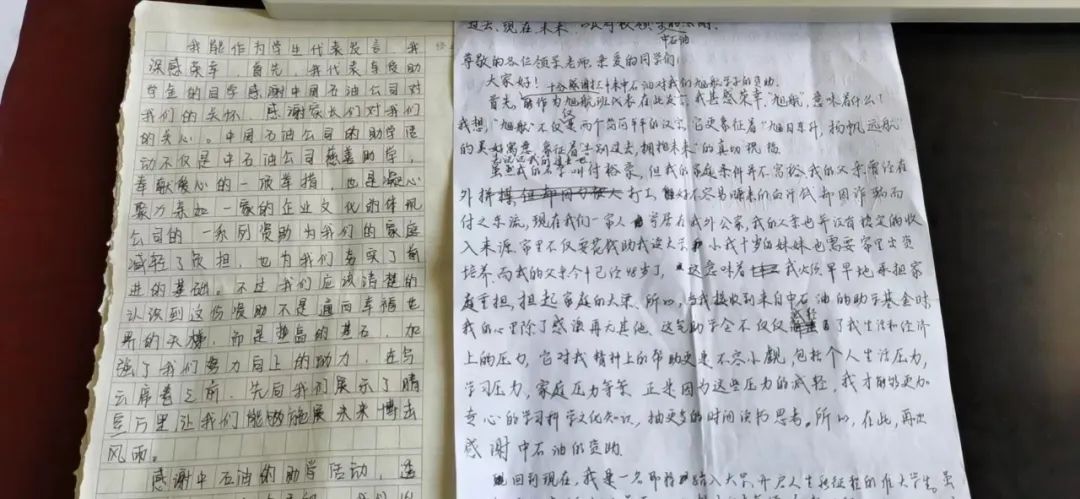 我能作为学生代表发言，我
深感荣幸，首先，我代表受助
学金的同学感谢中国石油公司对
我们的关怀，感谢家长们对我们
的关心。中国石油公司的助学活
动不仅是中石油公司慈善助学，
奉献爱心的一项举措，也是凝心
聚力亲如一家的企业文化的体现
公司的一系列资助为我们的家庭
减轻了负担，也为我们夯实了前
进的基础。不过我们应该清楚的
认识到这份资助不是通向幸福世
界的天梯，而是垫高的基石，加
强了我们努力向上的助力，在与
云席卷之前，先向我们展示了晴
空万里让我们能够施展未来搏击
风雨。
感谢中石油的助学活动，
过去、现在未来
中石油
尊敬的各位领导老师，亲爱的同学们：
大家好！十分感谢中石油对我们旭航学子的资助。
首先，能作为旭航班代表在此发言，我甚感荣幸，"旭航"，意味着什么！
我想，"旭航"不仅仅是两个简简单单的汉字，它更象征着"旭日东升，扬帆远航"
的美好寓意，象征着"告别过去，拥抱未来"的真切祝福。
虽然我的名字叫付裕豪，但我的家庭条件并不富裕，我的父亲曾经在
外拼打工，好不容易赚来的血汗钱却因诈骗而
付之东流，现在我们一家人寄居在我外公家，我的父亲也并没有稳定的收
入来源，家里不仅要花钱助我读大学，小我十岁的妹妹也需要家里出资
培养，而我的父亲今年已经岁了，这意味着我必须早早地承担家
庭重担，担起家庭的大梁，所以，当我接收到来自中石油的助学基金时
我的心里除了感激再无其他，这笔助学金不仅仅减轻了我生活和经济
上的压力，它对我精神上的帮助更是不容小觑，包括个人生活压力，
学习压力，家庭压力等等，正是因为这些压力的减轻，我才能够更加
专心的学习科学文化知识，抽更多的时间读书思考。所以，在此，再次
感谢中石油的资助。
回到现在，我是一名即将踏入大学，开启人生新征程的准大学生，虽